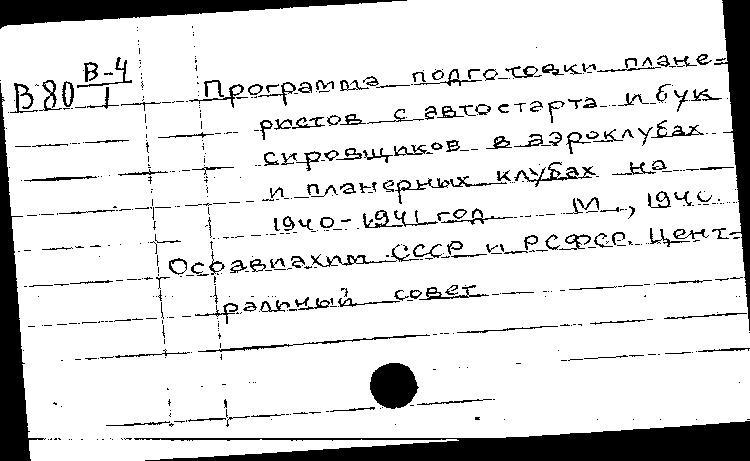 В80 В-4
1
Программа подготовки плане=
ристов с автостарта и бук
сировщиков в аэроклубах
и планерных клубах на
1940-1941 год. М., 1940.
Осоавиахим СССР и РСФСР. Цент=
ральный совет